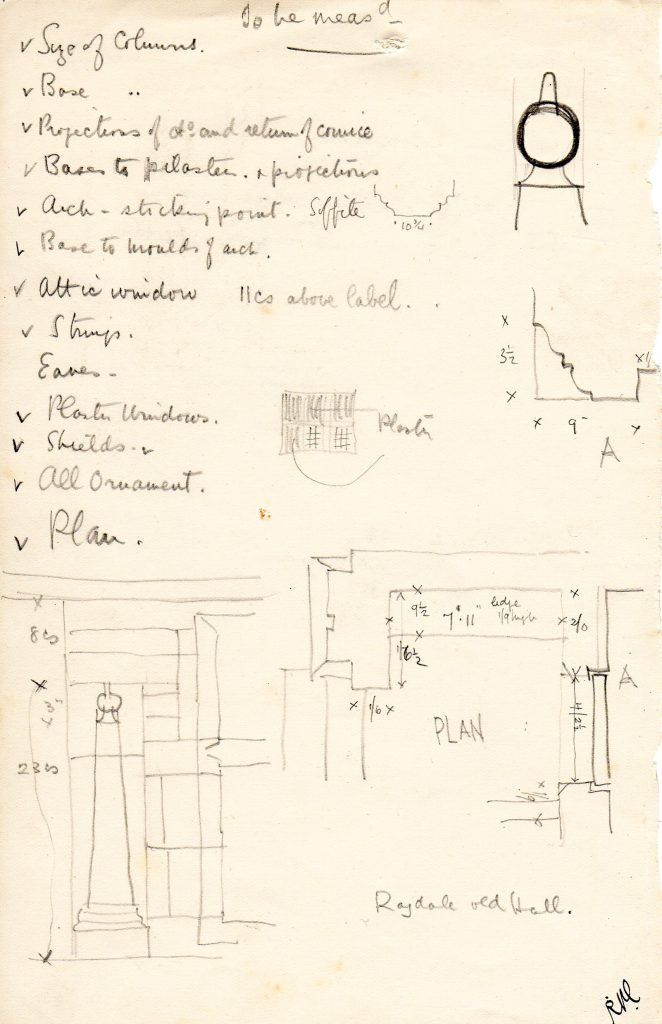 To be meas^d
✓ Size of Columns.
✓ Base "
✓ Projections of do and return of cornice
✓ Bases to pilasters. & projections
✓ Arch - sticking point. Soffite
10 3/4
✓ Base to moulds of arch.
✓ Attic window 11cs above label.
✓ Strings.
Eaves -
✓ Plaster Windows.
✓ Shields.
✓ All Ornament.
✓ Plan.
Plaster
3 1/2
9"
A
8cs
23cs
9 1/2
7'.11"
ledge
1/9 high
2/0
1/6 1/2
1/6
4/2 1/2
A
PLAN
Ragdale old Hall.